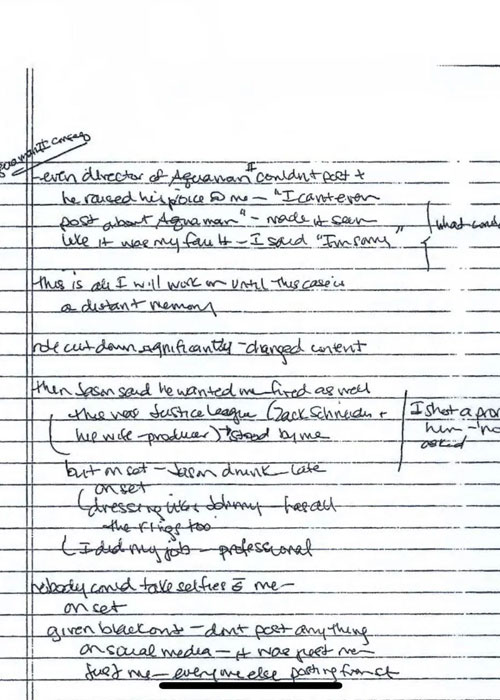 -even director of Aquaman II couldn't post +
he raised his voice @ me - "I can't even
post about Aquaman" - made it seem
like it was my fault - I said "I'm sorry"
this is all I will work on until this case is
a distant memory
role cut down significantly - changed content
then Jason said he wanted me fired as well
this was Justice League (Zack Schneider +
his wife - producer) → stood by me
I shot a
him -
asked
but on set - Jason drunk - late
on set
dressing like Johnny - has all
the rings too
I did my job - professional
nobody could take selfies c̄ me -
on set
given blackout - don't post anything
on social media - it was just me
just me - everyone else posting from set